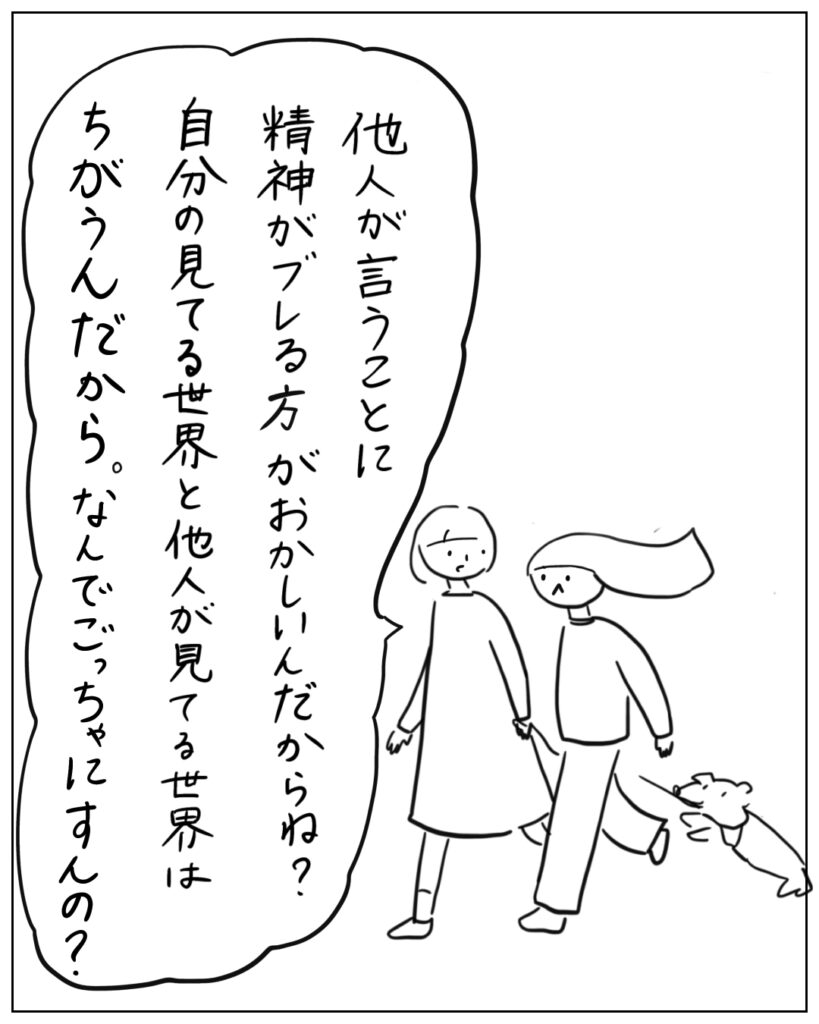 他人が言うことに
精神がブレる方がおかしいんだからね？
自分の見てる世界と他人が見てる世界は
ちがうんだから。なんでごっちゃにすんの？